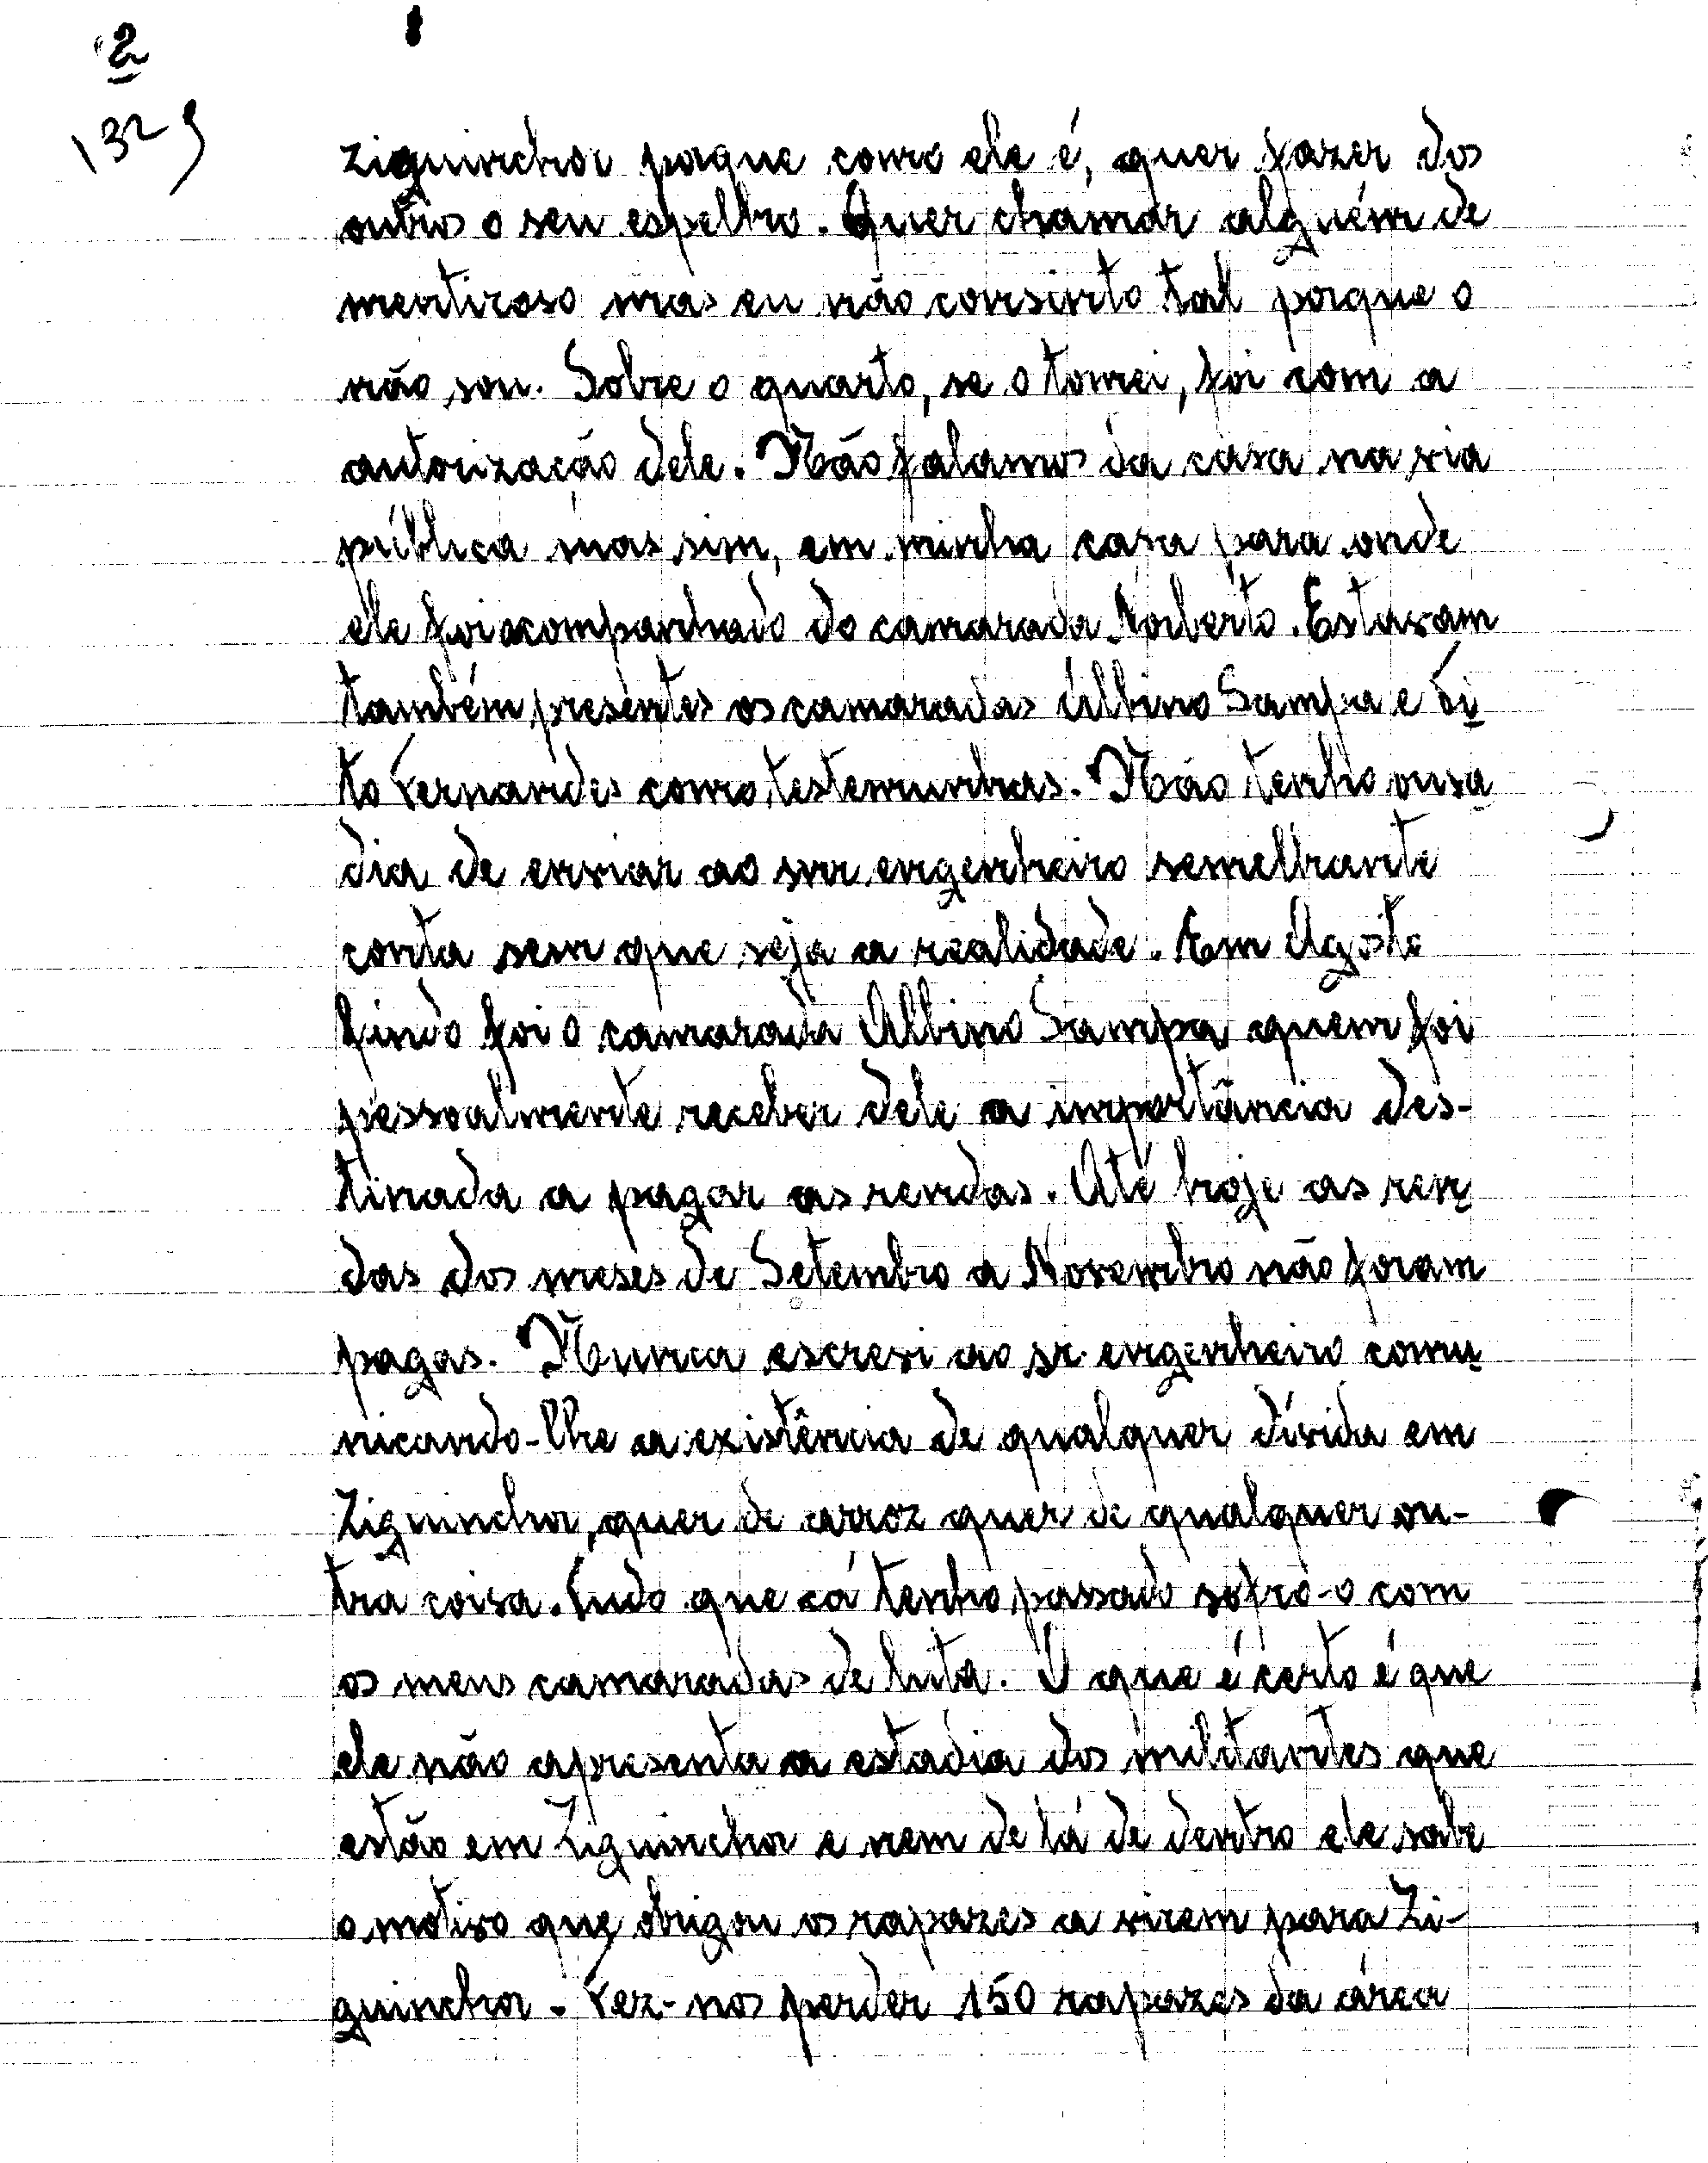 2
132 9
Ziguinchor porque como ele é, quer fazer dos
outros o seu espelho. Quer chamar alguém de
mentiroso mas eu não consinto tal porque o
não sou. Sobre o quarto, se o tomei, foi com a
autorização dele. Não falamos da casa na via
pública mas sim, em minha casa para onde
ele foi acompanhado do camarada Norberto. Estavam
também presentes os camaradas Albino Sampa e Di
to Fernandes como testemunhas. Não tenho ousa
dia de enviar ao snr. engenheiro semelhante
conta sem que seja a realidade. Em Agôsto
findo foi o camarada Albino Sampa quem foi
pessoalmente receber dele a importância des-
tinada a pagar as rendas. Até hoje as ren
das dos meses de Setembro a Novembro não foram
pagas. Nunca escrevi ao sr. engenheiro comu
nicando-lhe a existência de qualquer dívida em
Ziguinchor, quer de arroz quer de qualquer ou-
tra coisa. Tudo que cá tenho passado sofro-o com
os meus camaradas de luta. O que é certo é que
ele não apresenta a estadia dos militantes que
estão em Ziguinchor e nem de lá de dentro ele sabe
o motivo que obrigou os rapazes a virem para Zi-
guinchor. Fez-nos perder 150 rapazes da área